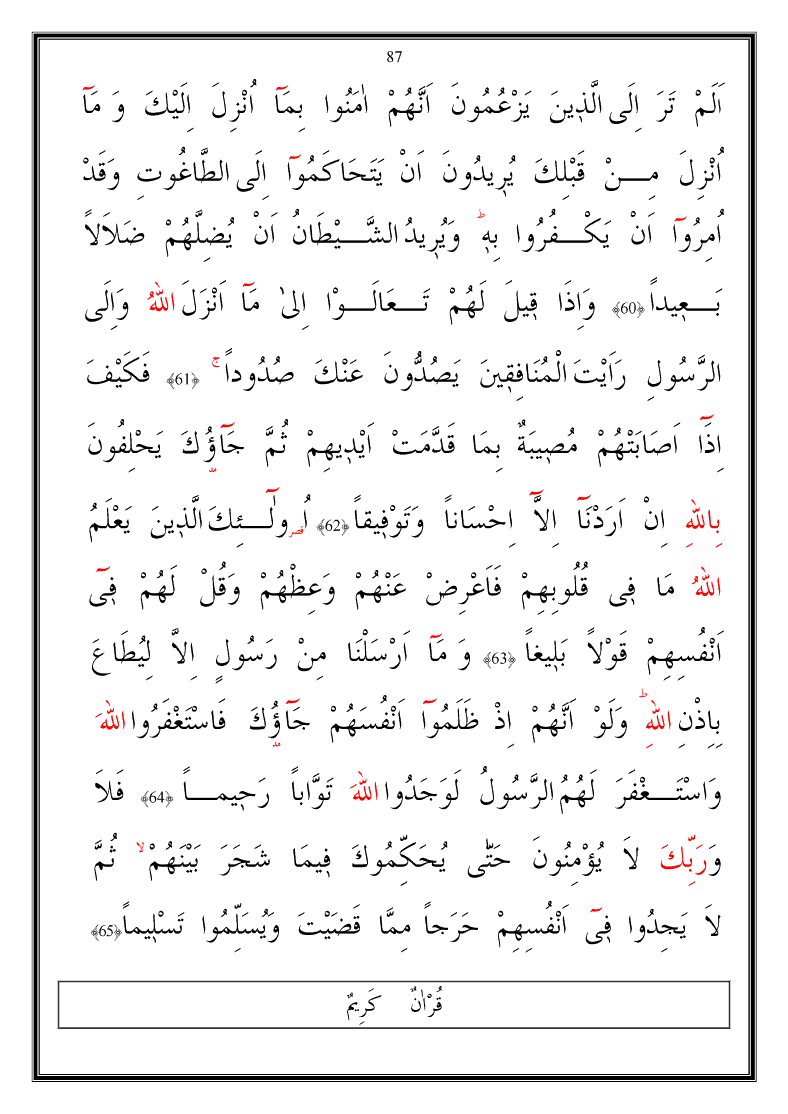 87
اَلَمْ تَرَ اِلَى الَّذٖينَ يَزْعُمُونَ اَنَّهُمْ اٰمَنُوا بِمَٓا اُنْزِلَ اِلَيْكَ وَ مَٓا
اُنْزِلَ مِـــنْ قَبْلِكَ يُرٖيدُونَ اَنْ يَتَحَاكَمُٓوا اِلَى الطَّاغُوتِ وَقَدْ
اُمِرُٓوا اَنْ يَكْـــفُرُوا بِهٖؕ وَيُرٖيدُ الشَّـــيْطَانُ اَنْ يُضِلَّهُمْ ضَلَالاً
بَـــعٖيداً ﴿60﴾ وَاِذَا قٖيلَ لَهُمْ تَـــعَالَـــوْا اِلٰى مَٓا اَنْزَلَ اللّٰهُ وَاِلَى
الرَّسُولِ رَاَيْتَ الْمُنَافِقٖينَ يَصُدُّونَ عَنْكَ صُدُوداًۚ ﴿61﴾ فَكَيْفَ
اِذَٓا اَصَابَتْهُمْ مُصٖيبَةٌ بِمَا قَدَّمَتْ اَيْدٖيهِمْ ثُمَّ جَٓاؤُ۫كَ يَحْلِفُونَ
بِاللّٰهِ اِنْ اَرَدْنَٓا اِلَّٓا اِحْسَاناً وَتَوْفٖيقاً ﴿62﴾ اُو۬لٰٓـــئِكَ الَّذٖينَ يَعْلَمُ
اللّٰهُ مَا فٖى قُلُوبِهِمْ فَاَعْرِضْ عَنْهُمْ وَعِظْهُمْ وَقُلْ لَهُمْ فٖٓى
اَنْفُسِهِمْ قَوْلاً بَلٖيغاً ﴿63﴾ وَ مَٓا اَرْسَلْنَا مِنْ رَسُولٍ اِلَّا لِيُطَاعَ
بِاِذْنِ اللّٰهِؕ وَلَوْ اَنَّهُمْ اِذْ ظَلَمُٓوا اَنْفُسَهُمْ جَٓاؤُ۫كَ فَاسْتَغْفَرُوا اللّٰهَ
وَاسْتَـــغْفَرَ لَهُمُ الرَّسُولُ لَوَجَدُوا اللّٰهَ تَوَّاباً رَحٖيمـــاً ﴿64﴾ فَلَا
وَرَبِّكَ لَا يُؤْمِنُونَ حَتّٰى يُحَكِّمُوكَ فٖيمَا شَجَرَ بَيْنَهُمْۙ ثُمَّ
لَا يَجِدُوا فٖٓى اَنْفُسِهِمْ حَرَجاً مِمَّا قَضَيْتَ وَيُسَلِّمُوا تَسْلٖيماً ﴿65﴾
قُرْاٰنٌ كَرِيمٌ